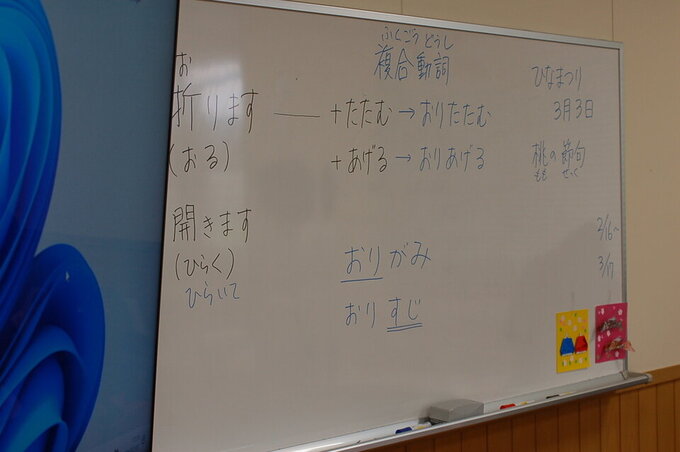 ふくごうどうし
複合動詞
お
折ります ― +たたむ→おりたたむ
(おる) +あげる→おりあげる
開きます
(ひらく)
ひらいて
おりがみ
おりすじ
ひなまつり
3月3日
桃の節句
もも せっく
2/16~
3/17